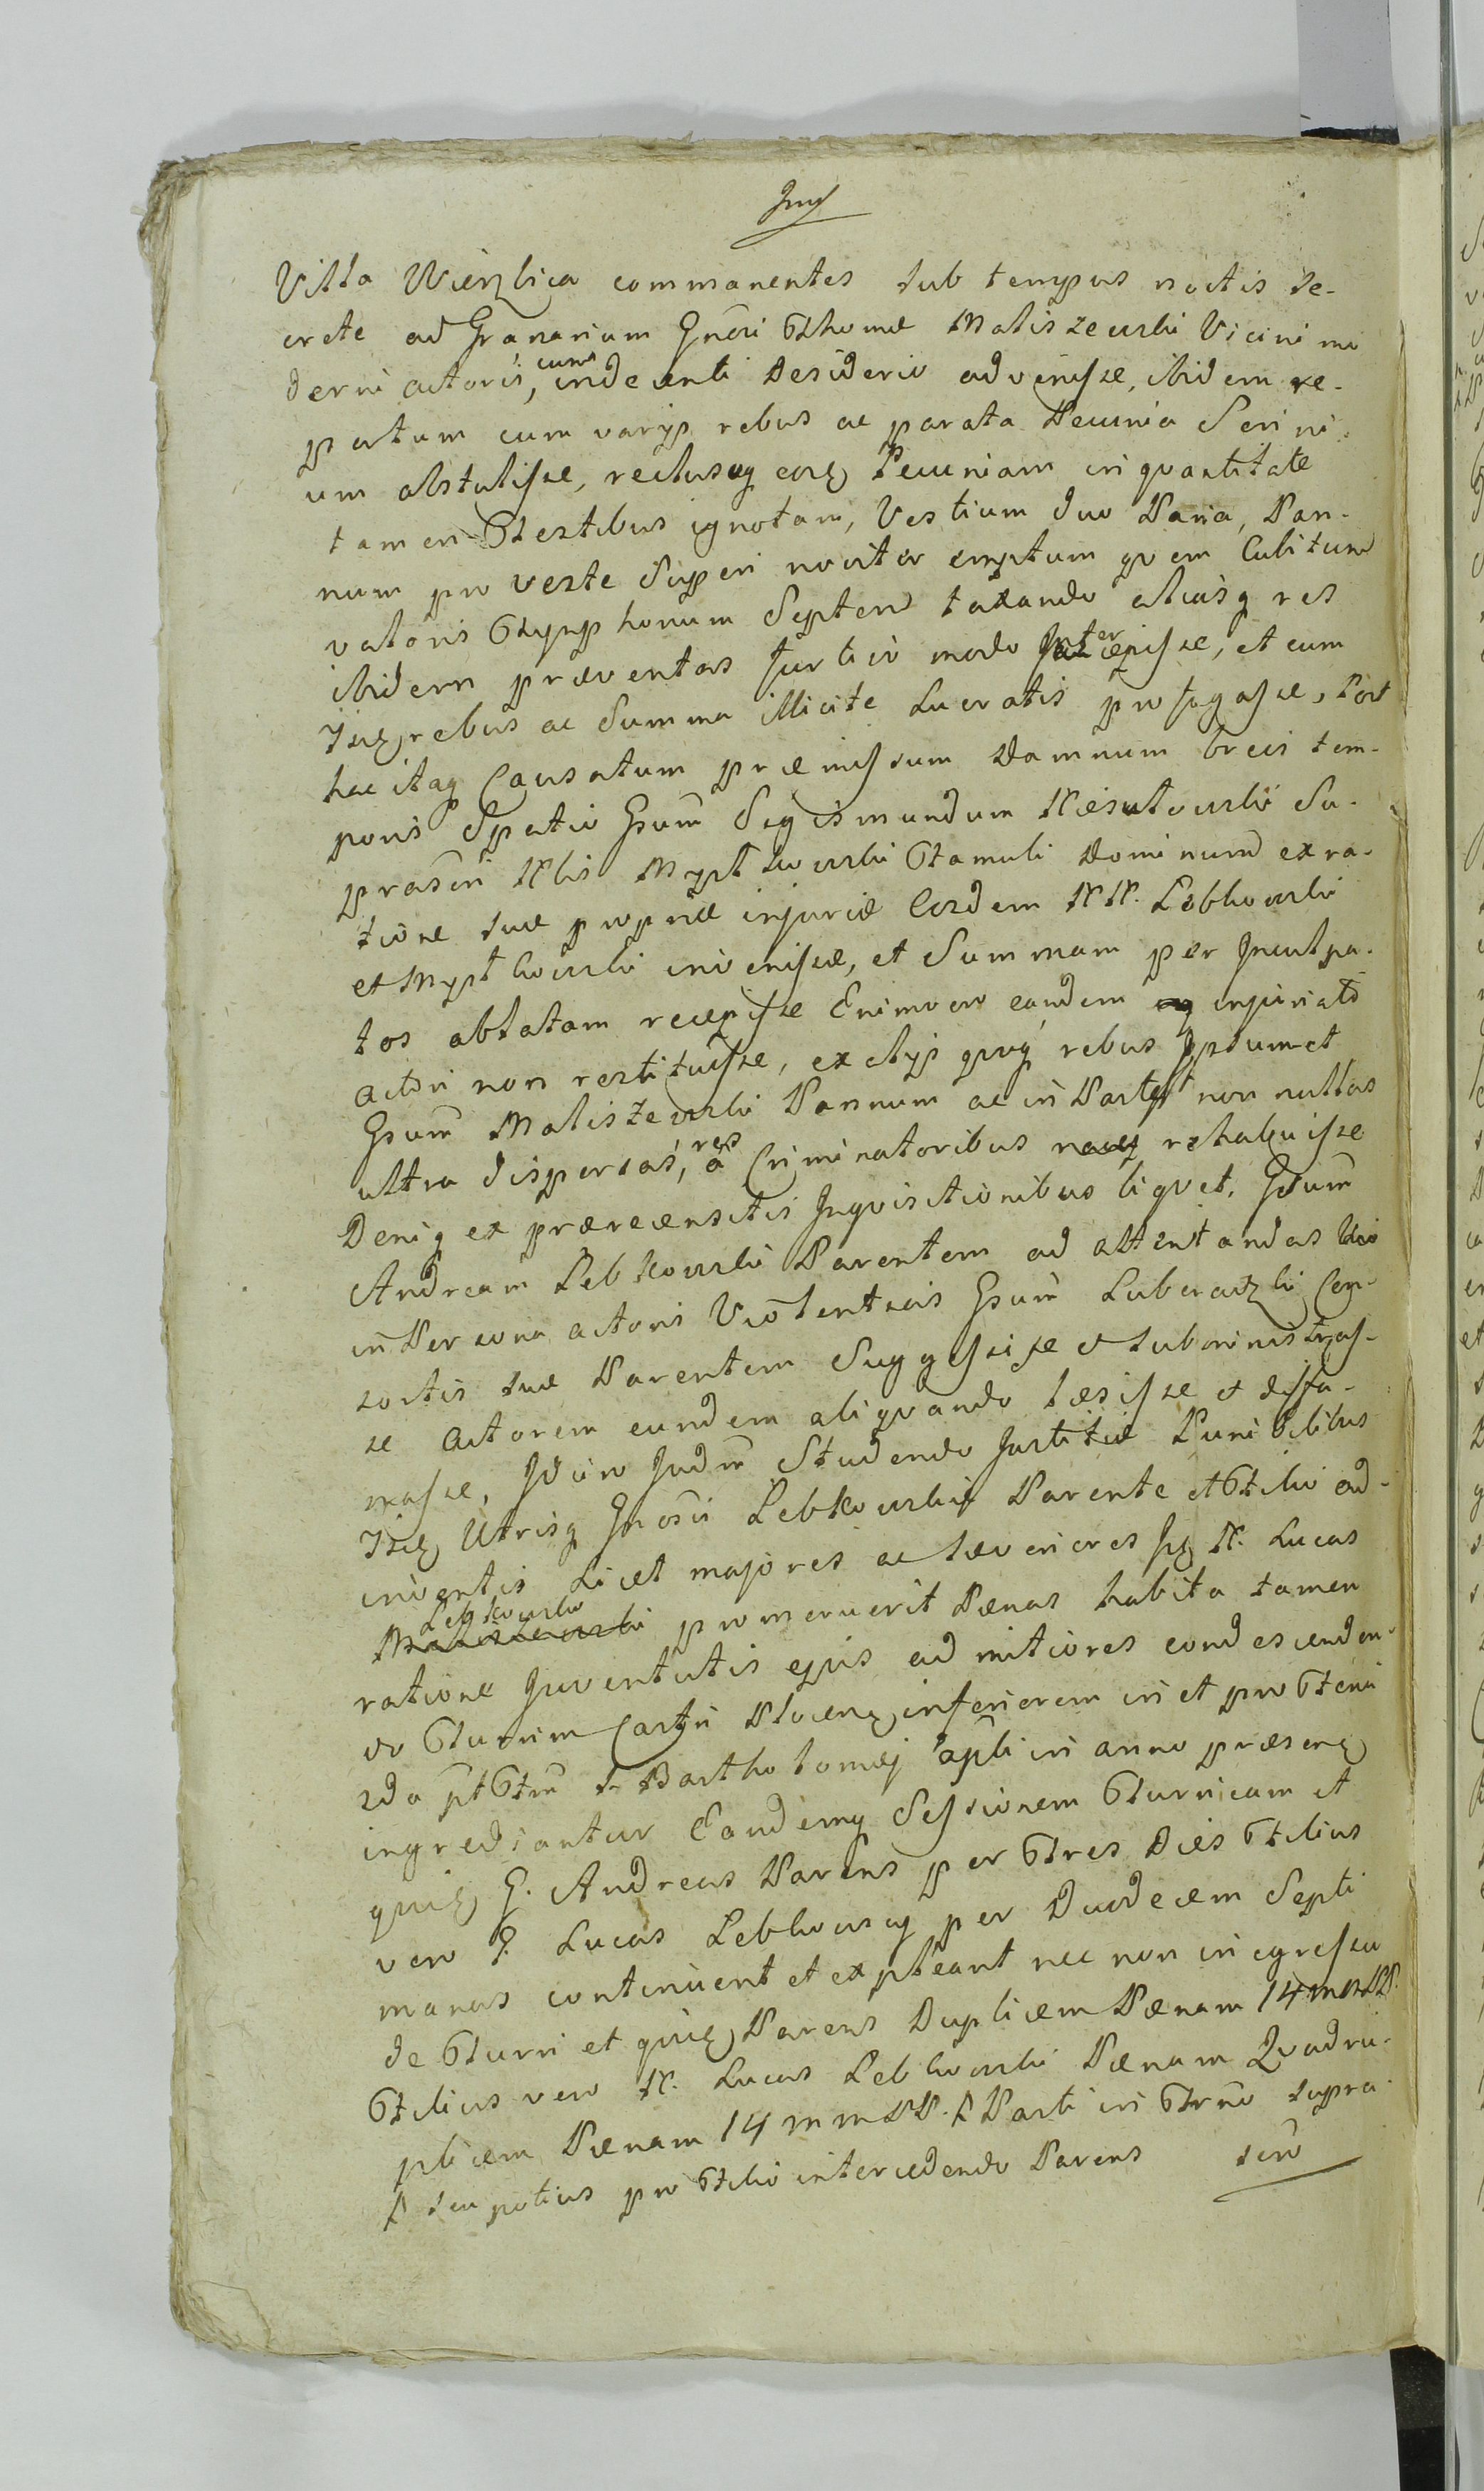 Villa Wierzbica commanentes sub tempus noctis se-
crete ad Granarium Gnosi Thomæ Maliszewski Vicini mo
derni actoris, cum indecenti Desiderio advenisse, ibidem re-
pertum cum varys rebus ac parata Pecunia Scrini
um abstulisse, reclusoq eoq Pecuniam in quantitate
tamen Testibus ignotam, Vestium duo Paria, Pan-
num pro veste Superi noviter emptum quem Cubitum
valoris Tympphonum Septem taxando aliasq res
ibidem præventas furtivo modo Intercepisse, et cum
Isq rebus ac Summa illicite Lucratis profugasse, Post
hac itaq Causatum præmissum Damnum brevi tem-
poris Spatio Gsum Sigismundum
Famuli Dominum ex ra-
tione suæ propriæ injuriæ Eosdem NN. Lebkowski
et invenisse, et Summam per Inculpa-
tos ablatam recepisse Enimvero eandem injuriato
Actori non restituisse, ex alys quoq rebus Ipsummet
Gsum Maliszewski Pannum ac in Parte non nullas
ultra dispersas, res a Criminatoribus rehabuisse
Deniq ex præcensitis Inquisitionibus liquet. Gsum
Andream Lebkowski Parentem ad attentandas
in Persona actoris Violentias Gsum Con-
sortis suæ Parentem Suggessisse et subministras-
se Actorem eundem aliquando læsisse et diffa-
masse, Idcirco Judm Studendo Justitiæ Punibilibus
Isq Utrisq Gnosis Lebkowskis Parente et Filio ad-
inventis Licet majores ac sæveriores N. Lucas
Lebkowski promeruerit Pænas habita tamen
ratione Juventutis ejus ad mitiores condescenden-
do Turrim Castri Plocens inferiorem in et pro Feria
2da pt Ftm S. Bartholomæj apli in anno præsens
ingrediantur Eandemq Sessionem Turricam et
quiq G. Andreas Parens per Tres Dies Filius
vero G. Lucas Lebkowscy per Duodecem Septi
manas continuent et expleant nec non in egressu
de Turri et quiq Parens Duplicem Pænam 14 mmPP.
Filius vero N. Lucas Lebkowski Pænam Quadru-
plicem Pænam 14 mmPP. Parti in Trno supra
seu potius pro Filio intercedendo Parens